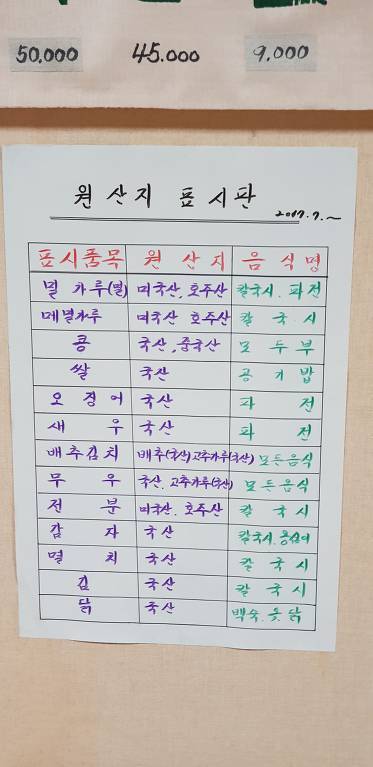 50.000 45.000 9.000
원산지 표시판
2017.7.~
표시품목 원산지 음식명
밀가루(밀) 미국산.호주산 칼국시.파전
메밀가루 미국산 호주산 칼국시
콩 국산,중국산 모두부
쌀 국산 공기밥
오징어 국산 파전
새우 국산 파전
배추김치 배추(국산)고추가루(국산) 모든음식
무우 국산.고추가루(국산) 모든음식
전분 미국산.호주산 칼국시
감자 국산 칼국시.옹심이
멸치 국산 칼국시
김 국산 칼국시
닭 국산 백숙.옻닭